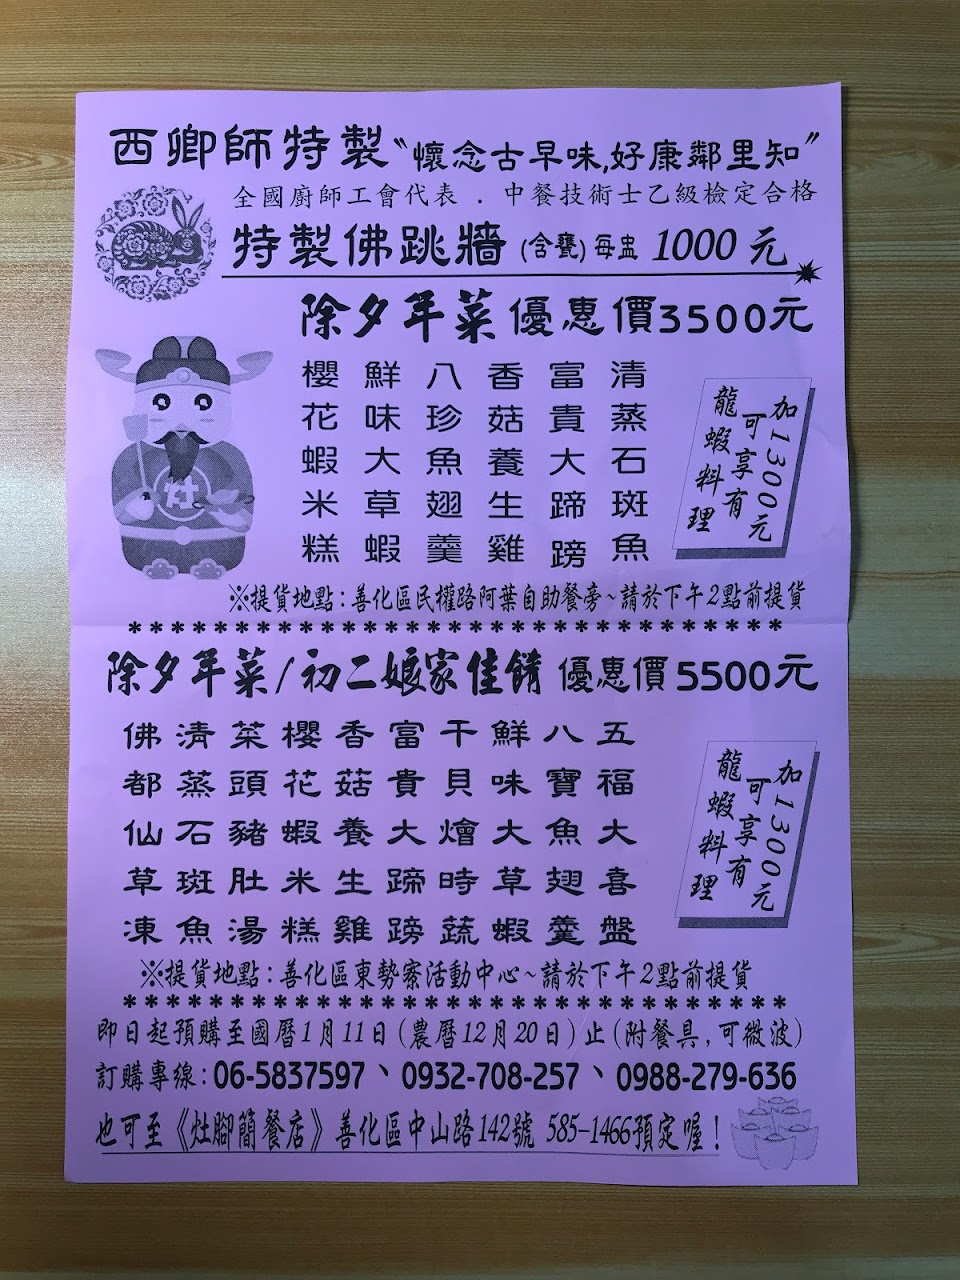 西卿師特製〝懷念古早味,好康鄰里知〞
全國廚師工會代表．中餐技術士乙級檢定合格
特製佛跳牆(含甕)每盅1000元
除夕年菜優惠價3500元
清蒸石斑魚
富貴大蹄膀
香菇養生雞
八珍魚翅羹
鮮味大草蝦
櫻花蝦米糕
加1300元
可享有
龍蝦料理
灶
※提貨地點:善化區民權路阿葉自助餐旁~請於下午2點前提貨
*******************************
除夕年菜/初二娘家佳餚 優惠價5500元
五福大喜盤
八寶魚翅羹
鮮味大草蝦
干貝燴時蔬
富貴大蹄膀
香菇養生雞
櫻花蝦米糕
菜頭豬肚湯
清蒸石斑魚
佛都仙草凍
加1300元
可享有
龍蝦料理
※提貨地點:善化區東勢寮活動中心~請於下午2點前提貨
*******************************
即日起預購至國曆1月11日(農曆12月20日)止(附餐具,可微波)
訂購專線:06-5837597、0932-708-257、0988-279-636
也可至《灶腳簡餐店》善化區中山路142號 585-1466預定喔!